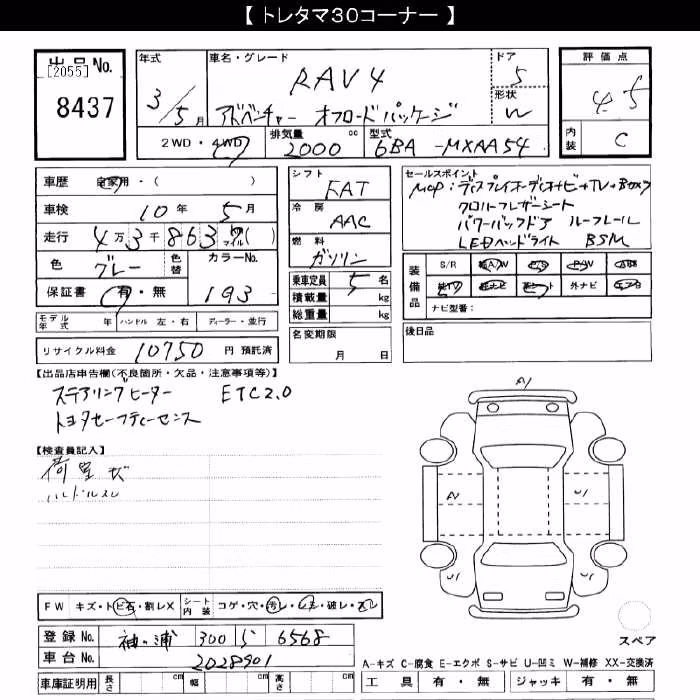 【 トレタマ30コーナー 】
出品No.
[2055]
8437
年式
3/5月
車名・グレード
RAV4
アドベンチャー オフロードパッケージ
ドア
5
形状
W
評価点
4.5
内装
C
2WD・4WD
排気量 cc
2000
型式
6BA-MXAA54
車歴 自家用・( )
車検 10年 5月
走行 4万3千863 km マイル( )
色 グレー
色替
カラーNo.
1G3
保証書 有・無
モデル年式 年 ハンドル 左・右 ディーラー・並行
リサイクル料金 10750 円 預託済
シフト
FAT
冷房
AAC
燃料
ガソリン
乗車定員 5 名
積載量 kg
総重量 kg
名変期限
月 日
セールスポイント
MOP:ディスプレイオーディオ+ナビ+TV+
クロハーフレザーシート
パワーバックドア ルーフレール
LEDヘッドライト BSM
装備品
S/R A/W P/S P/W ABS
純TV 純ナビ 革シート 外ナビ エアB
ナビ型番:
後日品
【出品店申告欄(不良箇所・欠品・注意事項等)】
ステアリングヒーター ETC2.0
トヨタセーフティーセンス
【検査員記入】
荷室
ハンドルスレ
A1
A2
U1
U1
U1
FW キズ・トビ石・割レX
シート内装 コゲ・穴・汚レ・スレ・破レ・
登録No. 袖ヶ浦 300 ら 6568
車台No. 2028901
スペア
A-キズ C-腐食 E-エクボ S-サビ U-凹ミ W-補修 XX-交換済
車庫証明用 長さ cm 幅 cm 高さ cm
工具 有・無 ジャッキ 有・無